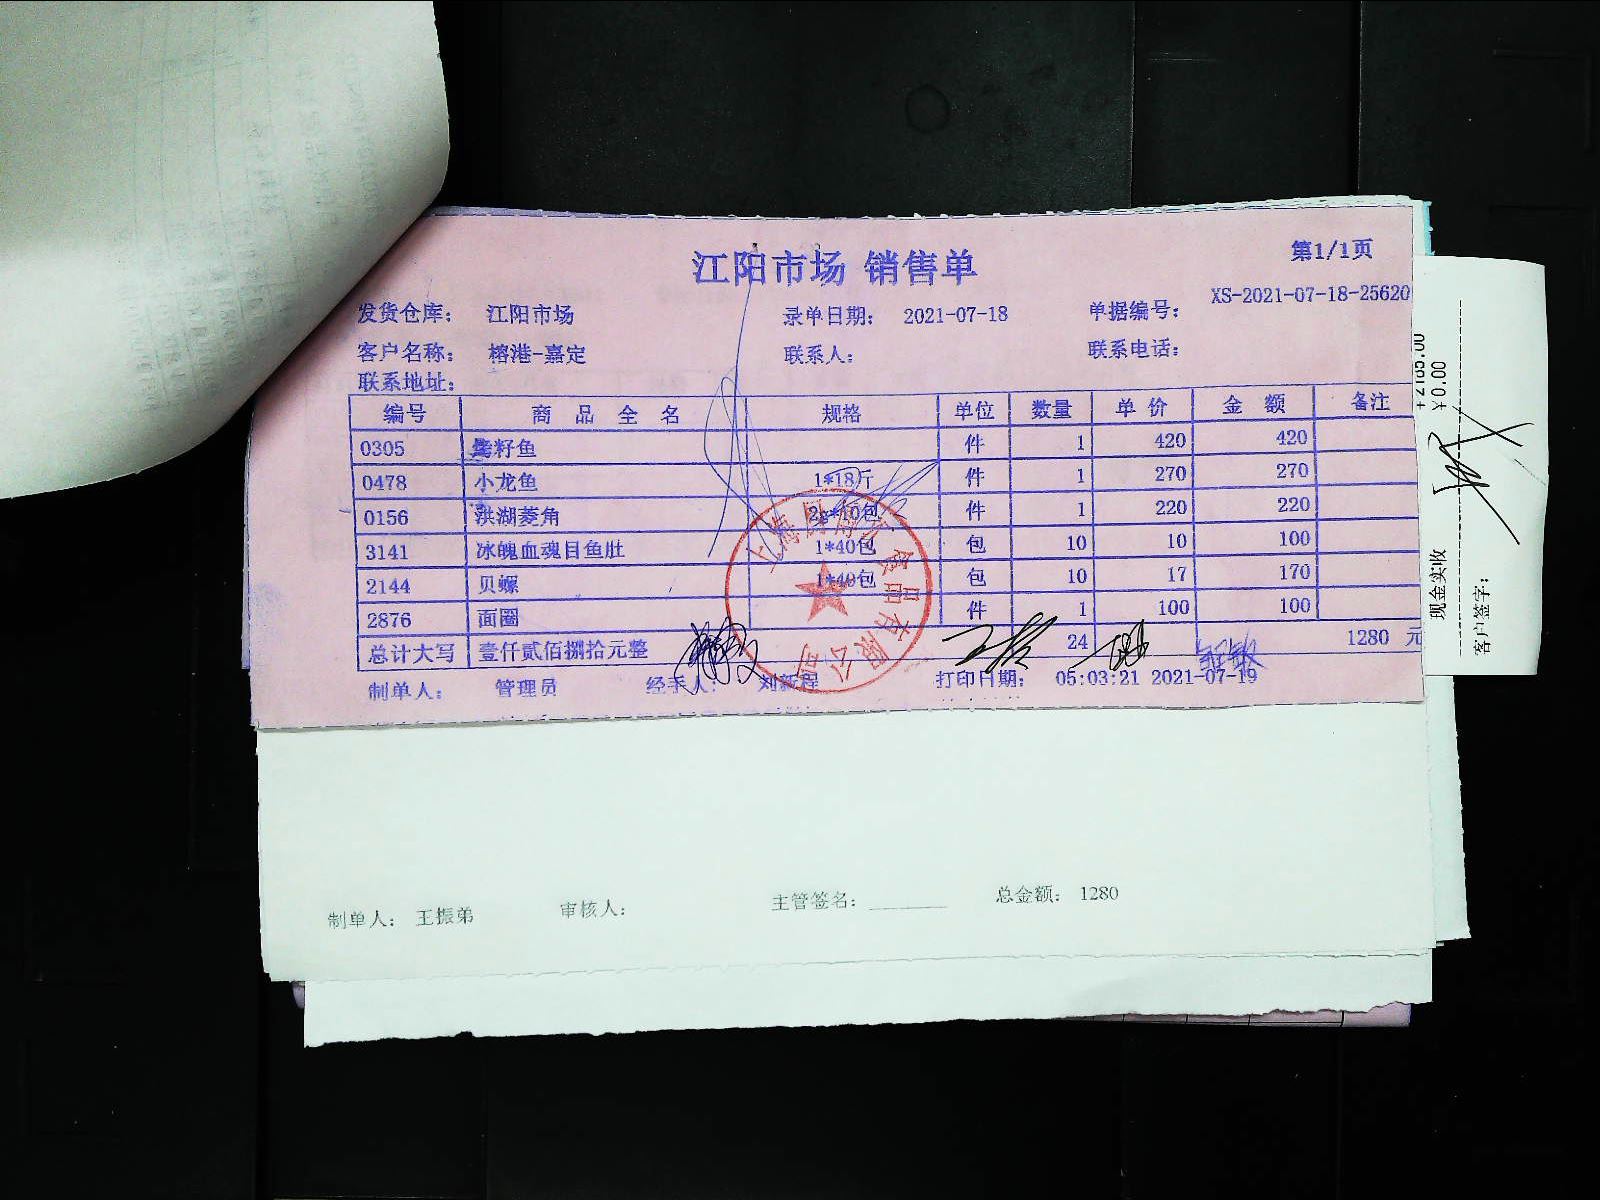 江阳市场 销售单
第1/1页
发货仓库： 江阳市场 录单日期： 2021-07-18 单据编号： XS-2021-07-18-25620
客户名称： 榕港-嘉定 联系人： 联系电话：
联系地址：
编号 商品全名 规格 单位 数量 单价 金额 备注
0305 籽鱼 件 1 420 420
0478 小龙鱼 1*18斤 件 1 270 270
0156 洪湖菱角 件 1 220 220
3141 冰魄血魂目鱼肚 1*40包 包 10 10 100
2144 贝螺 1*40包 包 10 17 170
2876 面圈 件 1 100 100
总计大写 壹仟贰佰捌拾元整 24 1280 元
制单人： 管理员 经手人： 刘新程 打印日期： 05:03:21 2021-07-19
上海 食品有限公司
制单人： 王振弟 审核人： 主管签名： 总金额： 1280
¥0.00
现金实收
客户签字：